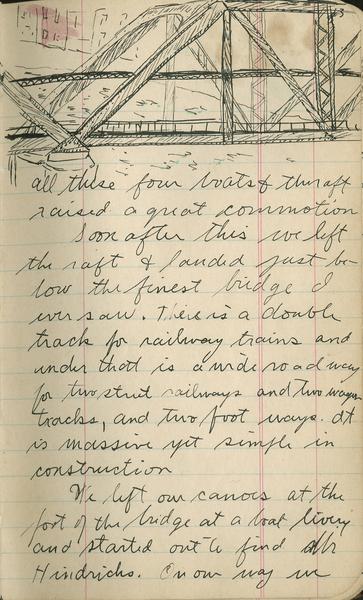 all these four boats & the raft
raised a great commotion
Soon after this we left
the raft & landed just be-
low the finest bridge I
ever saw. There is a double
track for railway trains and
under that is a wide roadway
for two street railways and two wagon
tracks, and two foot ways. It
is massive yet simple in
construction
We left our canoes at the
foot of the bridge at a boat livery
and started out to find
Hindrichs. On our way we